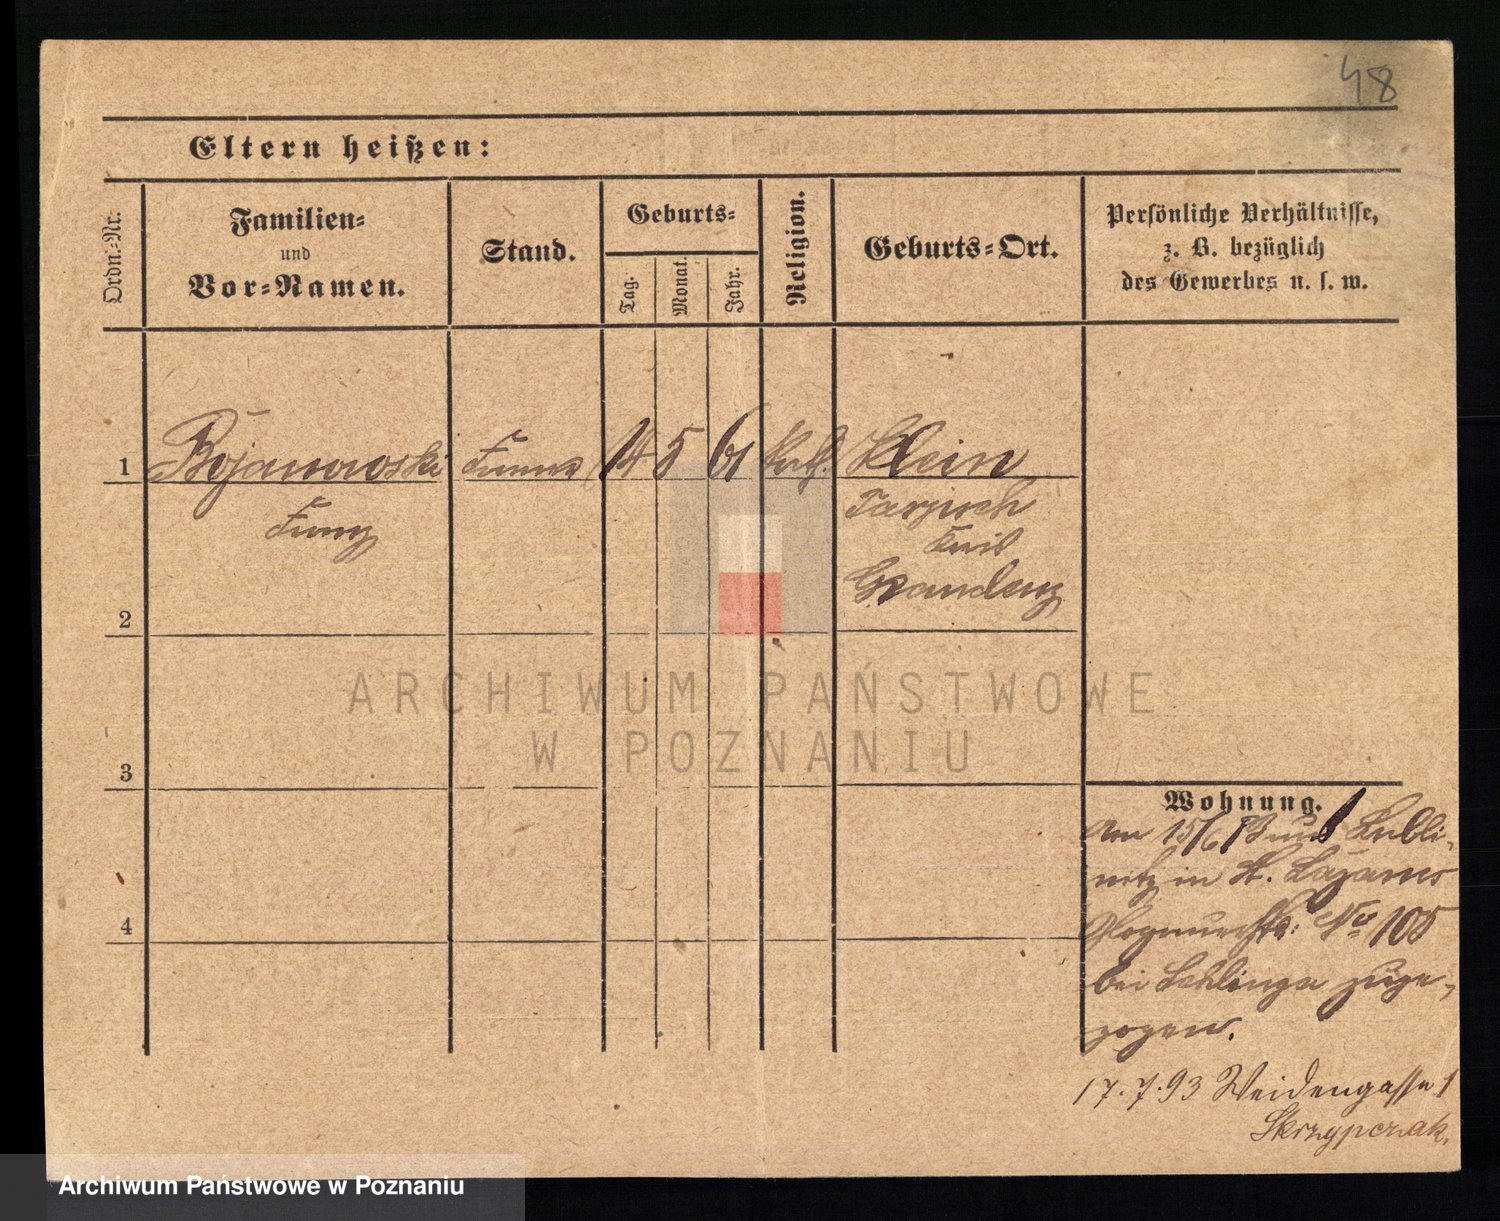 48
Eltern heißen:
Ordn.-Nr.
Familien-
und
Vor-Namen.
Stand.
Geburts-
Tag.
Monat.
Jahr.
Religion.
Geburts-Ort.
Persönliche Verhältnisse,
z. B. bezüglich
des Gewerbes u. s. w.
1
Bojanowski
14
5
61
Kath.
Klein
Franz
Tarpisch
Kreis
Graudenz
2
ARCHIWUM PAŃSTWOWE
W POZNANIU
3
Wohnung.
Am 15/6 93 aus Lubli-
nitz in St. Lazarus
No 105
bei zuge-
zogen.
4
17.7.93 Weidengasse 1
Skrzypczak.
Archiwum Państwowe w Poznaniu